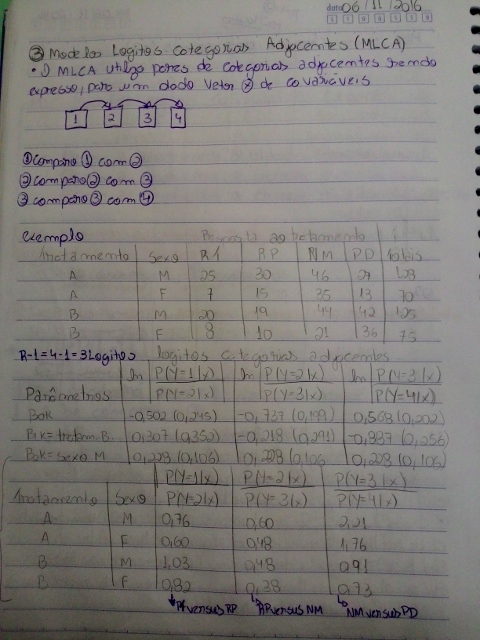 data 06/11/2016
③ Modelos Logitos Categorias Adjacentes (MLCA)
• O MLCA utiliza pares de categorias adjacentes sendo
expresso, para um dado vetor (x) de covariáveis
1 2 3 4
① Comparo ① com ②
② comparo ② com ③
③ comparo ③ com ④
exemplo
Resposta ao tratamento
Tratamento Sexo RP NM PD Totais
A M 25 30 46 27 128
A F 7 15 35 13 70
B M 20 19 44 42 125
B F 8 10 21 36 75
R-1=4-1=3 Logitos logitos categorias adjacentes
ln P(Y=1|x) ln P(Y=2|x) ln P(Y=3|x)
Parâmetros P(Y=2|x) P(Y=3|x) P(Y=4|x)
B0k -0,502 (0,245) -0,737 (0,199) 0,568 (0,202)
B1k=tratam. B 0,307 (0,352) -0,218 (0,291) -0,887 (0,256)
B2k=sexo M 0,228 (0,106) 0,228 (0,106 0,228 (0,106)
P(Y=1|x) P(Y=2|x) P(Y=3|x)
Tratamento Sexo P(Y=2|x) P(Y=3|x) P(Y=4|x)
A M 0,76 0,60 2,21
A F 0,60 0,48 1,76
B M 1,03 0,48 0,91
B F 0,82 0,38 0,73
versus RP RP versus NM NM versus PD